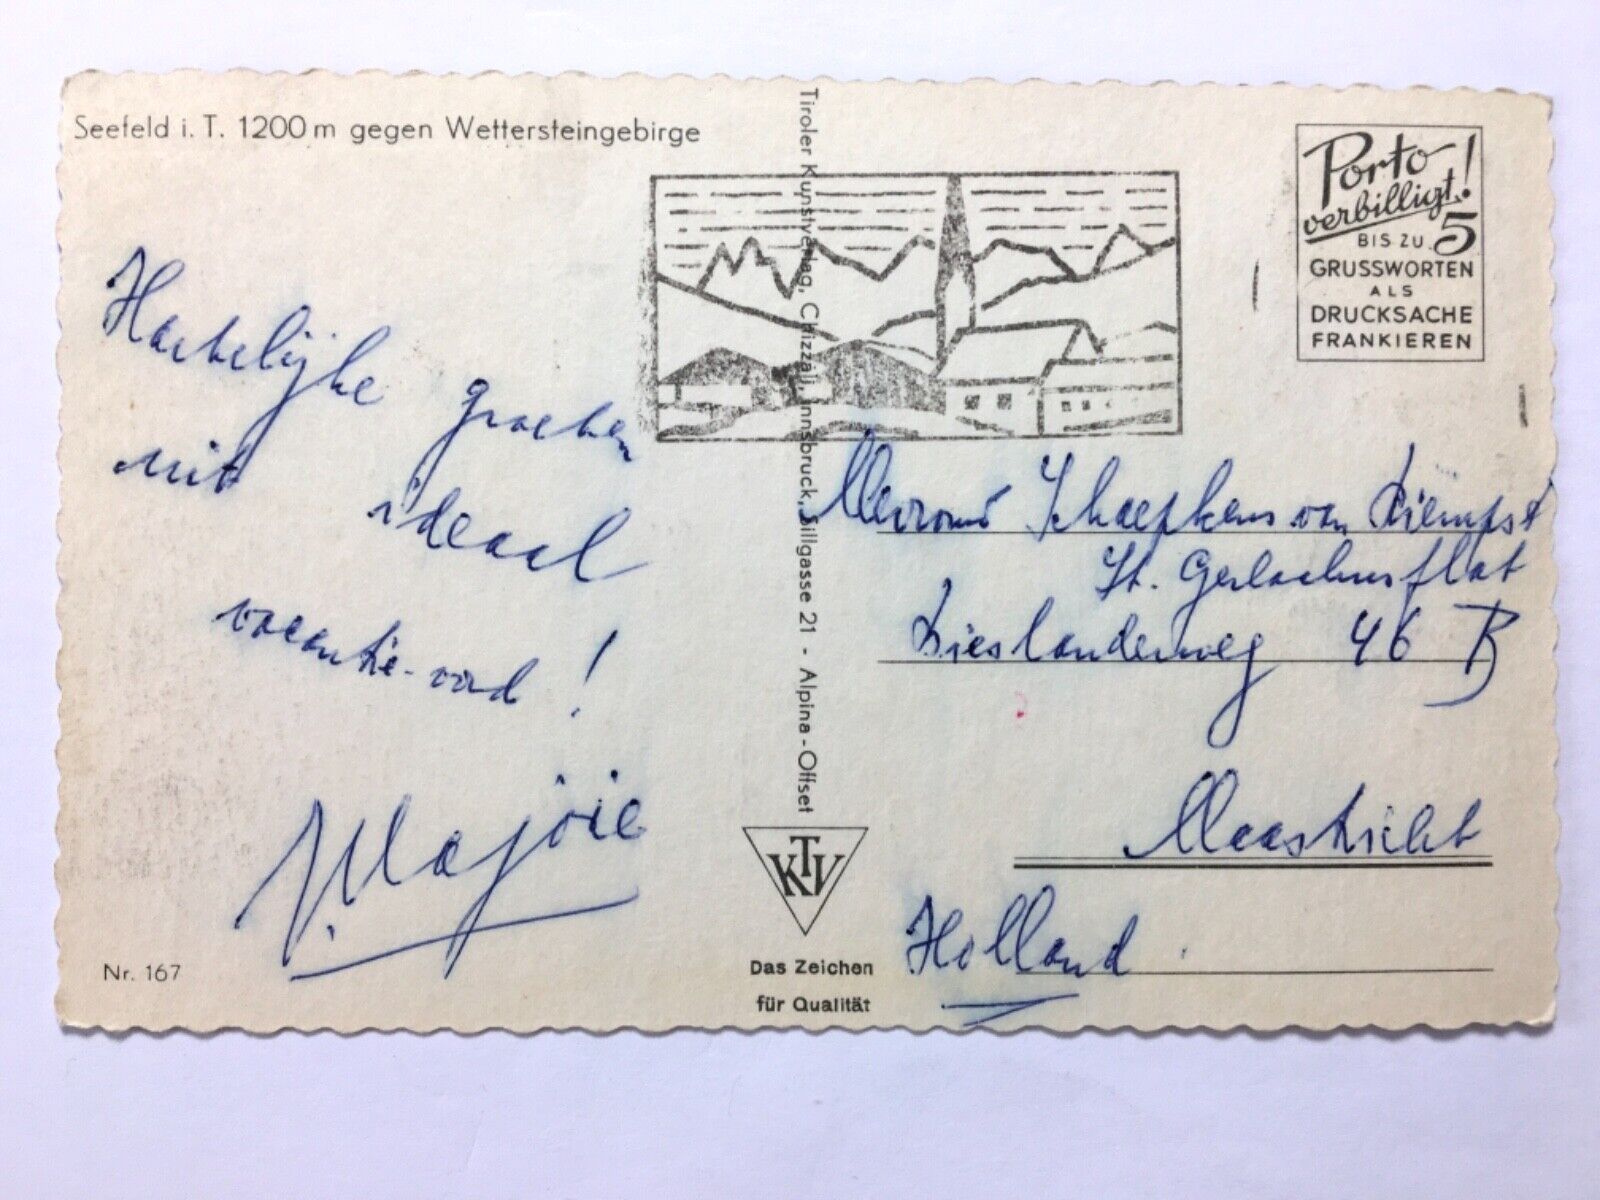 Seefeld i. T. 1200 m gegen Wettersteingebirge
Hartelijke groeten
uit ideaal
vacantie-oord!
Marjoie
Nr. 167
Tiroler Kunstverlag, Chizzali, Innsbruck, Sillgasse 21 - Alpina-Offset
KTV
Das Zeichen
für Qualität
Porto
verbilligt!
BIS ZU 5
GRUSSWORTEN
ALS
DRUCKSACHE
FRANKIEREN
Mevrouw Schaepkens van Riempst
St. Gerlachusflat
Vieslanderweg 46 B
Maastricht
Holland